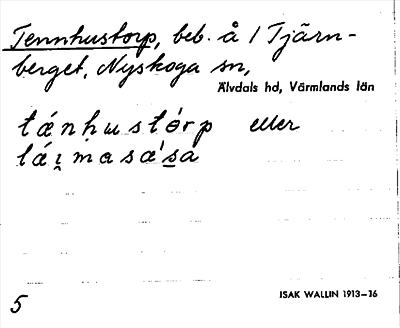 Tennhustorp, beb. å 1 Tjärn-
berget, Nyskoga sn,
Älvdals hd, Värmlands län
tǽnhustórp eller
láı̯masása
ISAK WALLIN 1913–16
5